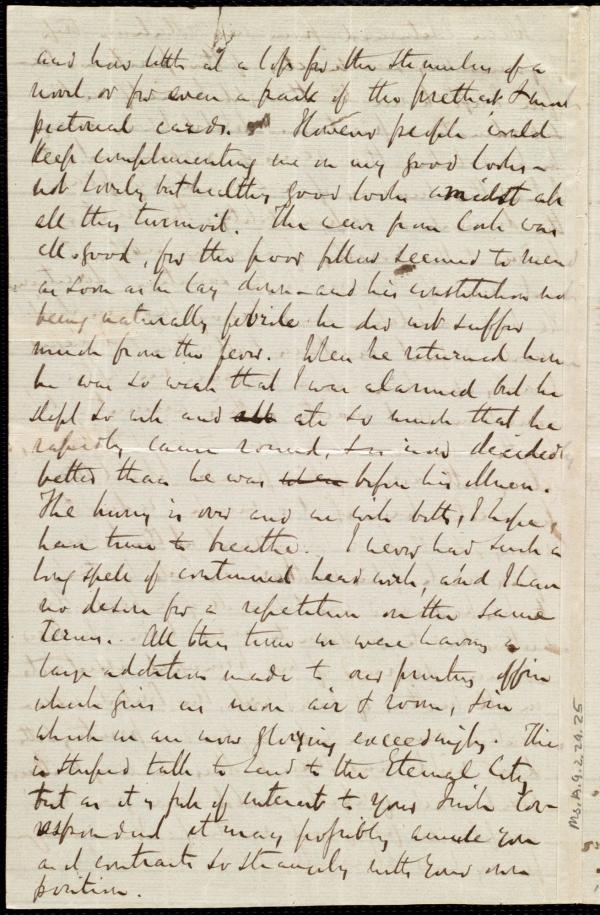 and how little at a loss for the stimulus of a
novel or for even a pack of the prettiest & most
pictorial cards. However people would
keep complimenting me on my good looks –
not lovely but healthy good looks amidst all
all this turmoil. The news from Cork was
all good, for the poor fellow seemed to mend
as soon as he lay down – and his constitution not
being naturally febrile he did not suffer
much from the fever. When he returned home
he was so weak that I was alarmed but he
slept so well and all ate so much that he
rapidly came round, & is now decidedly
better than he was when before his illness.
The hurry is over and we will both, I hope,
have time to breathe. I never had such a
long spell of continued head work, and I have
no desire for a repetition on the same
terms. All this time we were having a
large addition made to our printing office
which gives us more air & room, & in
which we are now glorying exceedingly. This
is stupid talk to send to the Eternal City
but as it is full of interest to your Irish Cor-
respondent it may possibly amuse you
and contrasts so strangely with your own
position.
Ms.A.9.2.24.25